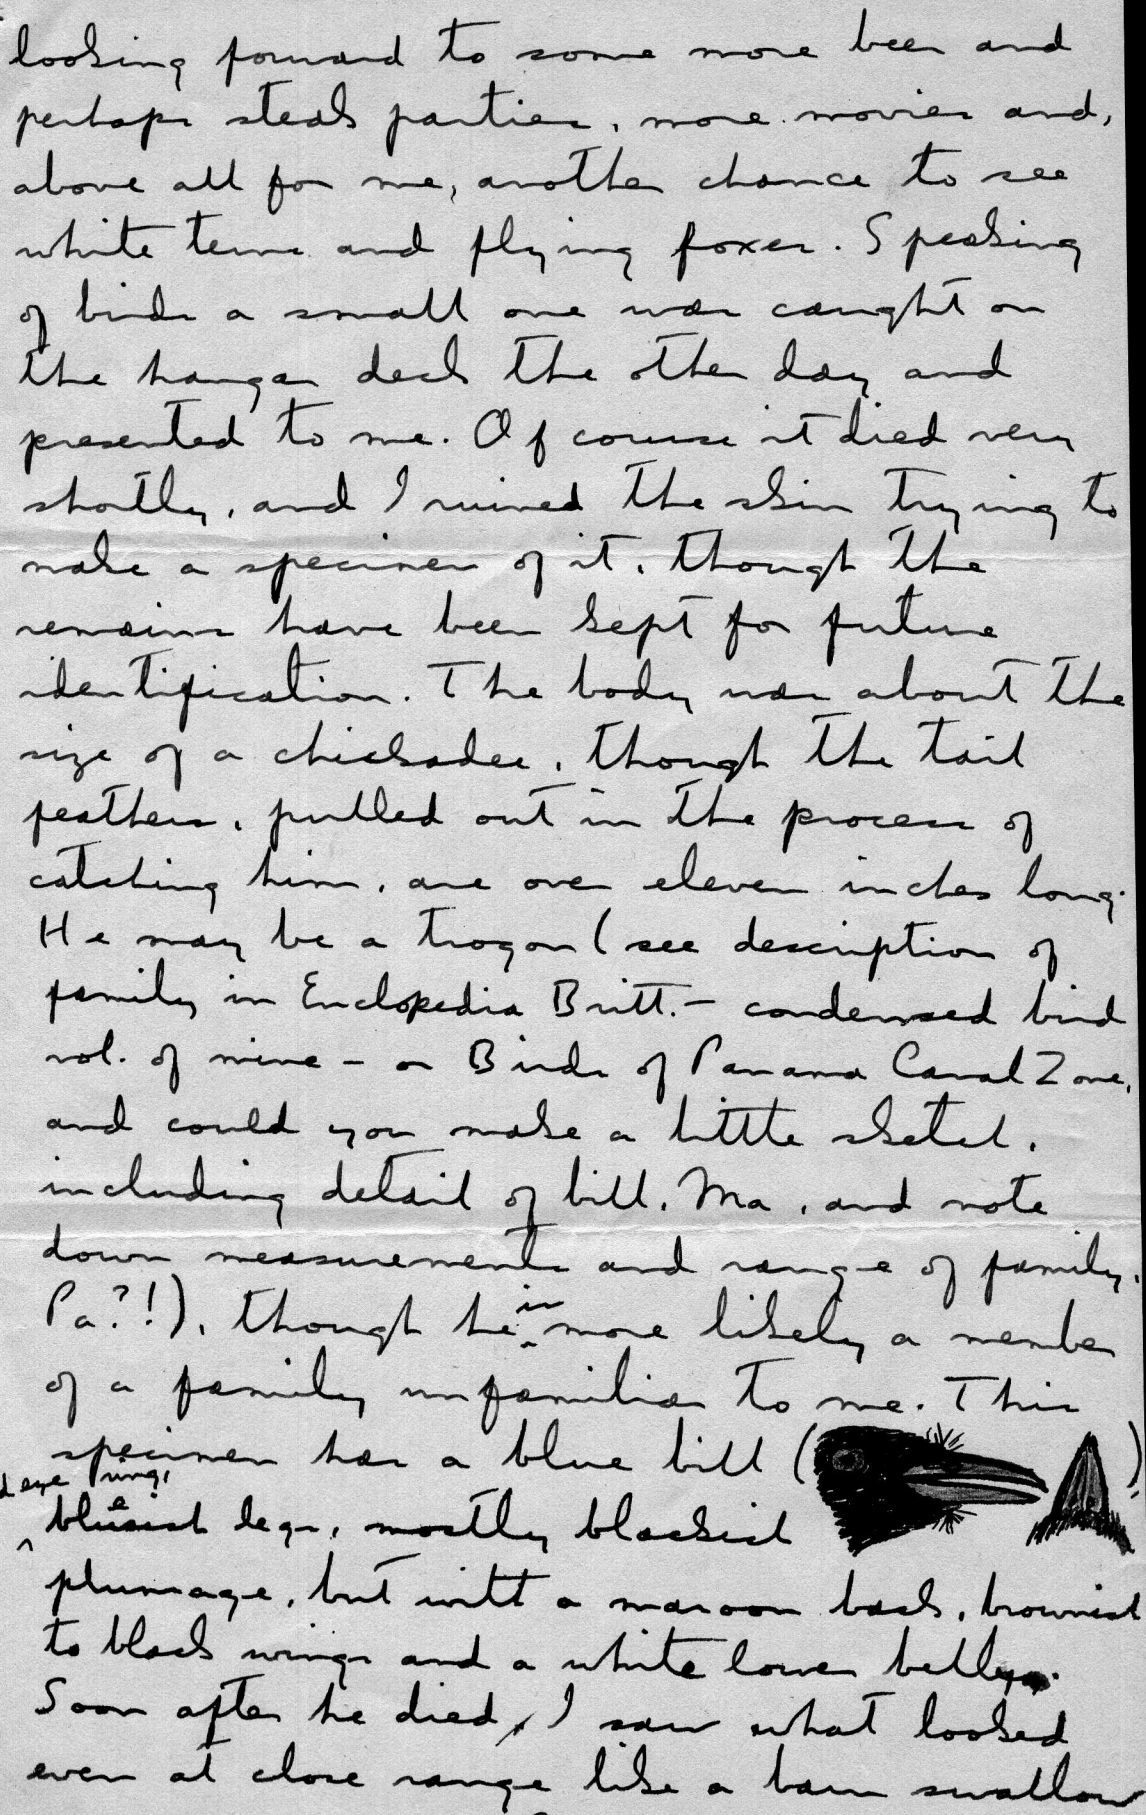 looking forward to some more beer and
perhaps steak parties, more movies and,
above all for me, another chance to see
white terns and flying foxes. Speaking
of birds a small one was caught on
the hangar deck the other day and
presented to me. Of course it died very
shortly, and I ruined the skin trying to
make a specimen of it, though the
remains have been kept for future
identification. The body was about the
size of a chickadee, though the tail
feathers, pulled out in the process of
catching him, are over eleven inches long.
He may be a trogon (see description of
family in Enclopedia Britt. – condensed bird
vol. of mine – or Birds of Panama Canal Zone,
and could you make a little sketch,
including detail of bill, Ma, and note
down measurements and range of family,
Pa?!), though he is more likely a member
of a family unfamiliar to me. This
specimen has a blue bill ( )
eye ring,
blueish legs, mostly blackish
plumage, but with a maroon back, brownish
to black wings and a white lower belly.
Soon after he died, I saw what looked
even at close range like a barn swallow